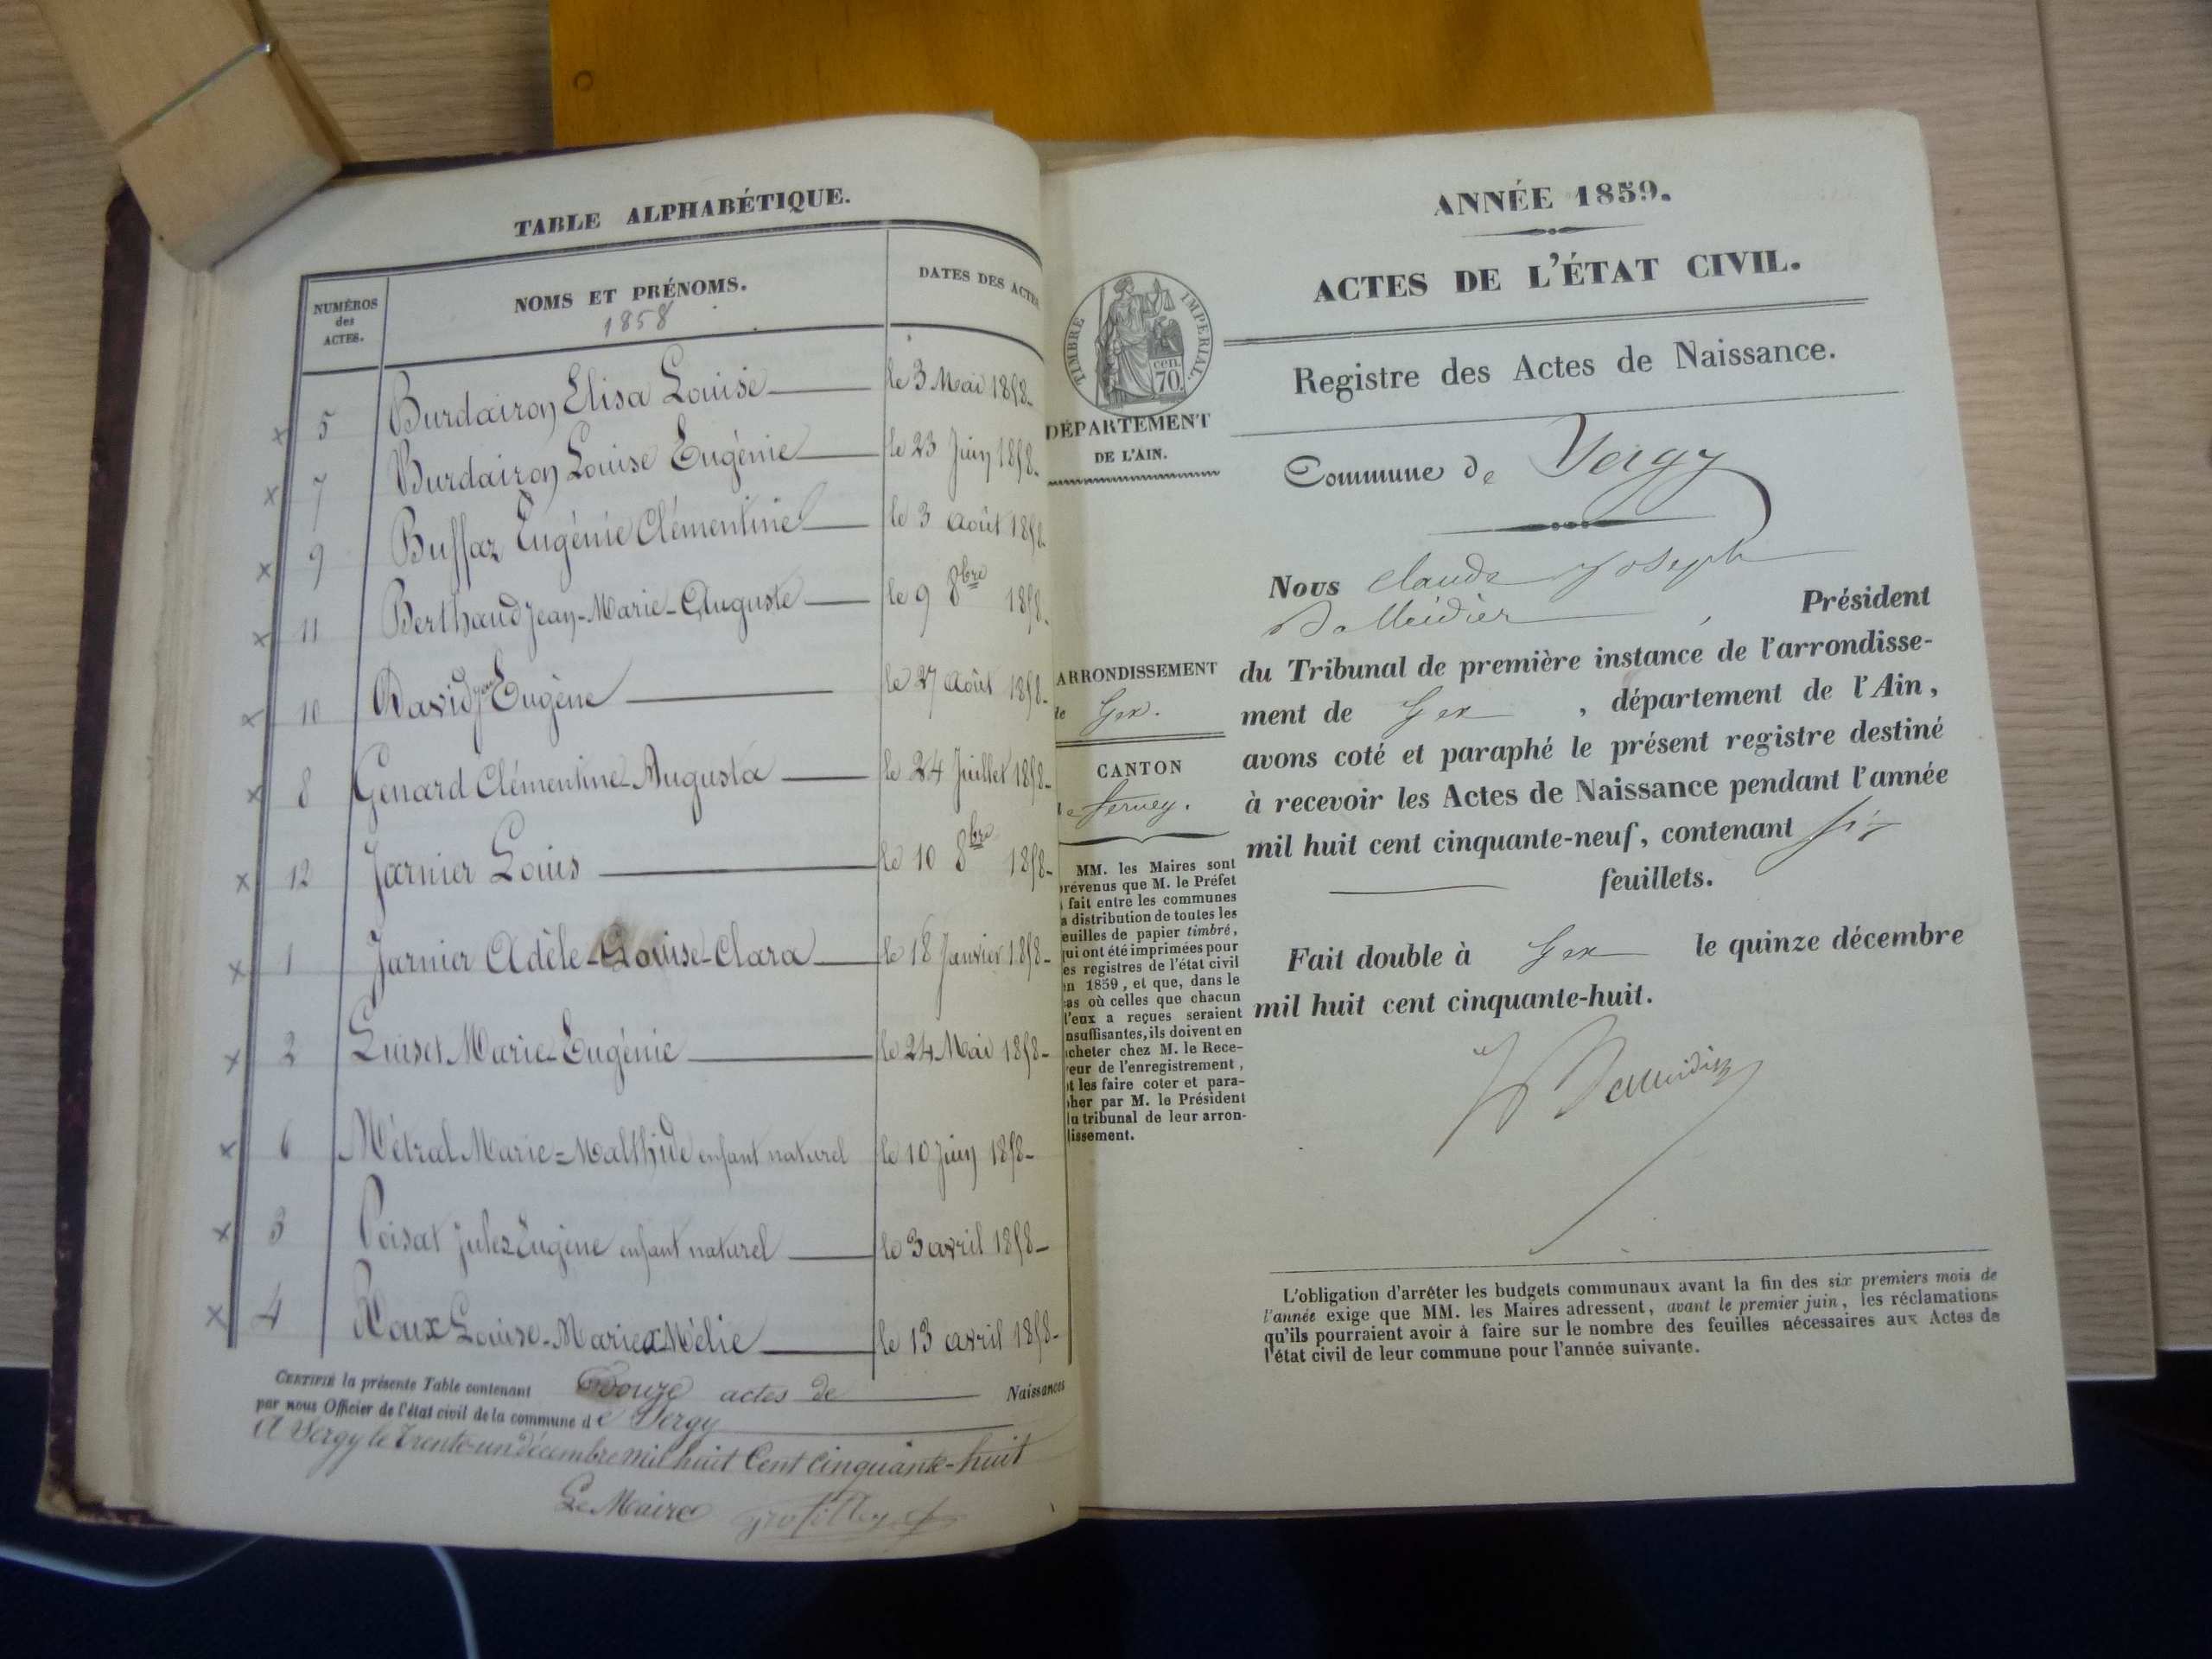 TABLE ALPHABÉTIQUE.
NUMÉROS des ACTES.
NOMS ET PRÉNOMS.
1858
DATES DES ACTES
x 5 Burdairon Elisa Louise le 3 Mai 1858
x 7 Burdairon Louise Eugénie le 23 Juin 1858
x 9 Buffaz Eugénie Clémentine le 3 août 1858
x 11 Berthaud Jean-Marie-Auguste le 9 8bre 1858
x 10 David Jean Eugène le 27 août 1858
x 8 Genard Clémentine Augusta le 24 Juillet 1858
x 12 Jarnier Louis le 10 8bre 1858
x 1 Jarnier Adèle-Louise-Clara le 18 Janvier 1858
x 2 Luiset Marie-Eugénie le 24 Mai 1858
x 6 Métral Marie=Malthide enfant naturel le 10 Juin 1858
x 3 Poisat Jules Eugène enfant naturel le 3 avril 1858
x 4 Roux Louise-Marie Mélie le 13 avril 1858
CERTIFIÉ la présente Table contenant Douze actes de Naissances
par nous Officier de l'état civil de la commune de Sergy
A Sergy le Trente-un décembre mil huit Cent Cinquante-huit
Le Maire
ANNÉE 1859.
ACTES DE L'ÉTAT CIVIL.
TIMBRE IMPÉRIAL.
cen. 70.
Registre des Actes de Naissance.
DÉPARTEMENT
DE L'AIN.
Commune de Sergy
Nous Claude Joseph
, Président
du Tribunal de première instance de l'arrondisse-
ment de Gex , département de l'Ain,
avons coté et paraphé le présent registre destiné
à recevoir les Actes de Naissance pendant l'année
mil huit cent cinquante-neuf, contenant six
feuillets.
Fait double à Gex le quinze décembre
mil huit cent cinquante-huit.
ARRONDISSEMENT
de Gex.
CANTON
de Ferney.
MM. les Maires sont
prévenus que M. le Préfet
a fait entre les communes
la distribution de toutes les
feuilles de papier timbré,
qui ont été imprimées pour
les registres de l'état civil
en 1859, et que, dans le
cas où celles que chacun
d'eux a reçues seraient
insuffisantes, ils doivent en
acheter chez M. le Rece-
veur de l'enregistrement,
et les faire coter et para-
pher par M. le Président
du tribunal de leur arron-
dissement.
L'obligation d'arrêter les budgets communaux avant la fin des six premiers mois de
l'année exige que MM. les Maires adressent, avant le premier juin, les réclamations
qu'ils pourraient avoir à faire sur le nombre des feuilles nécessaires aux Actes de
l'état civil de leur commune pour l'année suivante.